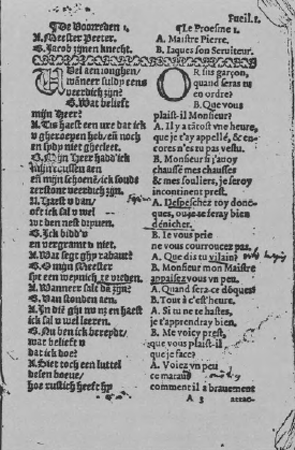 Fueil.1.
De Voorreden 1
A. Meester Peeter.
B. Jacob zijnen knecht.
Wel aen ionghen/
wanneer suldy eens
veerdich zijn?
B. Wat belieft
mijn Heer?
A. Tis haest een ure dat ick
u gheroepen heb/en noch
en syndy niet ghecleet.
B. Mijn Heer hadd'ick
mijn coussen aen
en mijn schoene/ick soude
terstont veerdich zijn.
A. Haest u dan/
oft ick sal u wel
wt den nest
B. Ick bidd'u
en vergramt u niet.
A. Wat segt ghy rabaut?
B. O mijn Meester
een weynich te vreden.
A. Wanneer salt dā zijn?
B. Van stonden aen.
A. In diē ghy nu nz en haest
ick sal u wel leeren.
B. Nu ben ick bereydt/
wat belieft u
dat ick doe?
A. Siet toch een luttel
desen boeve/
hoe rustich heeft hy
Le Proesme 1.
A. Maistre Pierre.
B. Iaques son Seruiteur.
OR sus garçon,
quand seras tu
en ordre?
B. Que vous
plaist-il Monsieur?
A. Il y a tātost vne heure,
que je t'ay appellé, & en-
cores n'es tu pas vestu.
B. Monsieur si j'auoy
chaussé mes chausses
& mes souliers, je seroy
incontinent prest.
A. Despeschez toy donc-
ques, ou je te feray bien
dénicher.
B. Ie vous prie
ne vous courroucez pas.
A. Que dis tu vilain?
B. Monsieur mon Maistre
appaisez vous vn peu.
A. Quand sera-ce dōques?
B. Tout à c'est heure.
A. Si tu ne te hastes,
je t'apprendray bien.
B. Me voicy prest,
que vous plaist-il
que je face?
A. Voiez vn peu
ce maraud
comment il a brauement
A 3
attac-